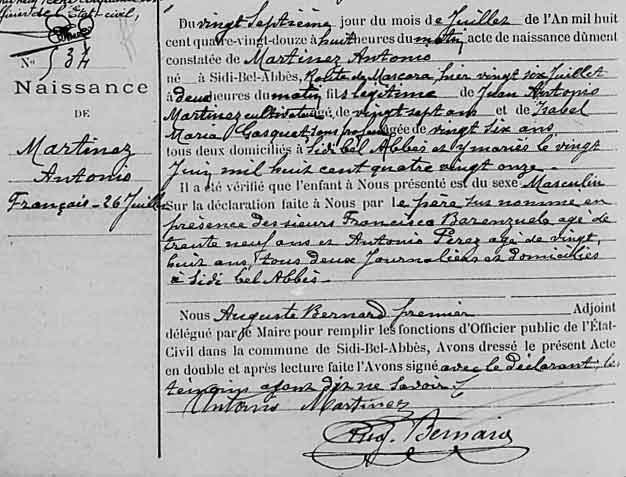 l'État civil,
N° 534
Naissance
DE
Martinez
Antonio
Français - 26 Juillet
Du vingt septième jour du mois de Juillet de l'An mil huit
cent quatre-vingt-douze à huit heures du matin acte de naissance dûment
constatée de Martinez Antonio
né à Sidi-Bel-Abbès, Route de Mascara hier vingt six Juillet
à deux heures du matin fils légitime de Juan Antonio
Martinez cultivateur âgé de vingt sept ans et de Isabel
Maria Gasquet sans profon âgée de vingt six ans
tous deux domiciliés à Sidi bel Abbès et y mariés le vingt
Juin mil huit cent quatre vingt onze
Il a été vérifié que l'enfant à Nous présenté est du sexe Masculin
Sur la déclaration faite à Nous par le père sus nommé en
présence des sieurs Francisco Barenzuela agé de
trente neuf ans et Antonio Perez agé de vingt
huit ans, tous deux Journaliers et domiciliés
à Sidi bel Abbès.
Nous Auguste Bernard premier Adjoint
délégué par le Maire pour remplir les fonctions d'Officier public de l'État-
Civil dans la commune de Sidi-Bel-Abbès, Avons dressé le présent Acte
en double et après lecture faite l'Avons signé avec le déclarant, les
témoins ayant dit ne savoir
Antonio Martinez
Aug. Bernard